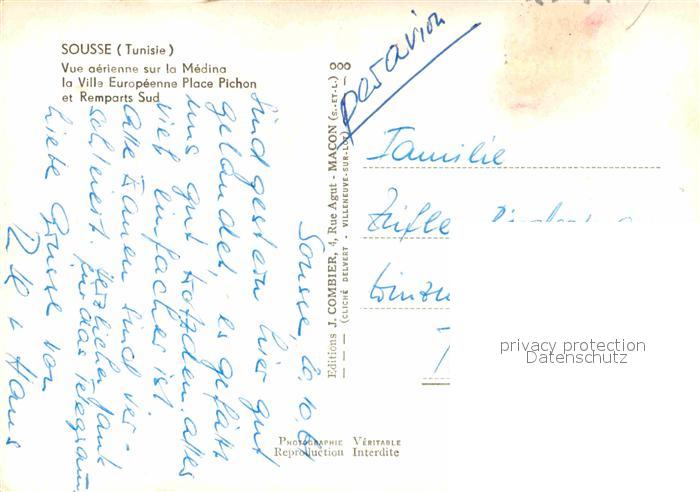 SOUSSE (Tunisie)
Vue aérienne sur la Médina
la Ville Européenne Place Pichon
et Remparts Sud
par avion
Sousse, 6.10.6
sind gestern hier gut
gelandet, es gefällt
uns gut trotzdem alles
viel einfacher ist
alle Frauen sind ver-
schleiert. Herzlichen Dank
für das Telegram
Liebe Grüsse von
+ Hans
000
Editions J. COMBIER, 4, Rue Agut - MACON (S.-ET-L.)
(CLICHÉ DELVERT - VILLENEUVE-SUR-LOT)
Familie
privacy protection
Datenschutz
PHOTOGRAPHIE VÉRITABLE
Reproduction Interdite